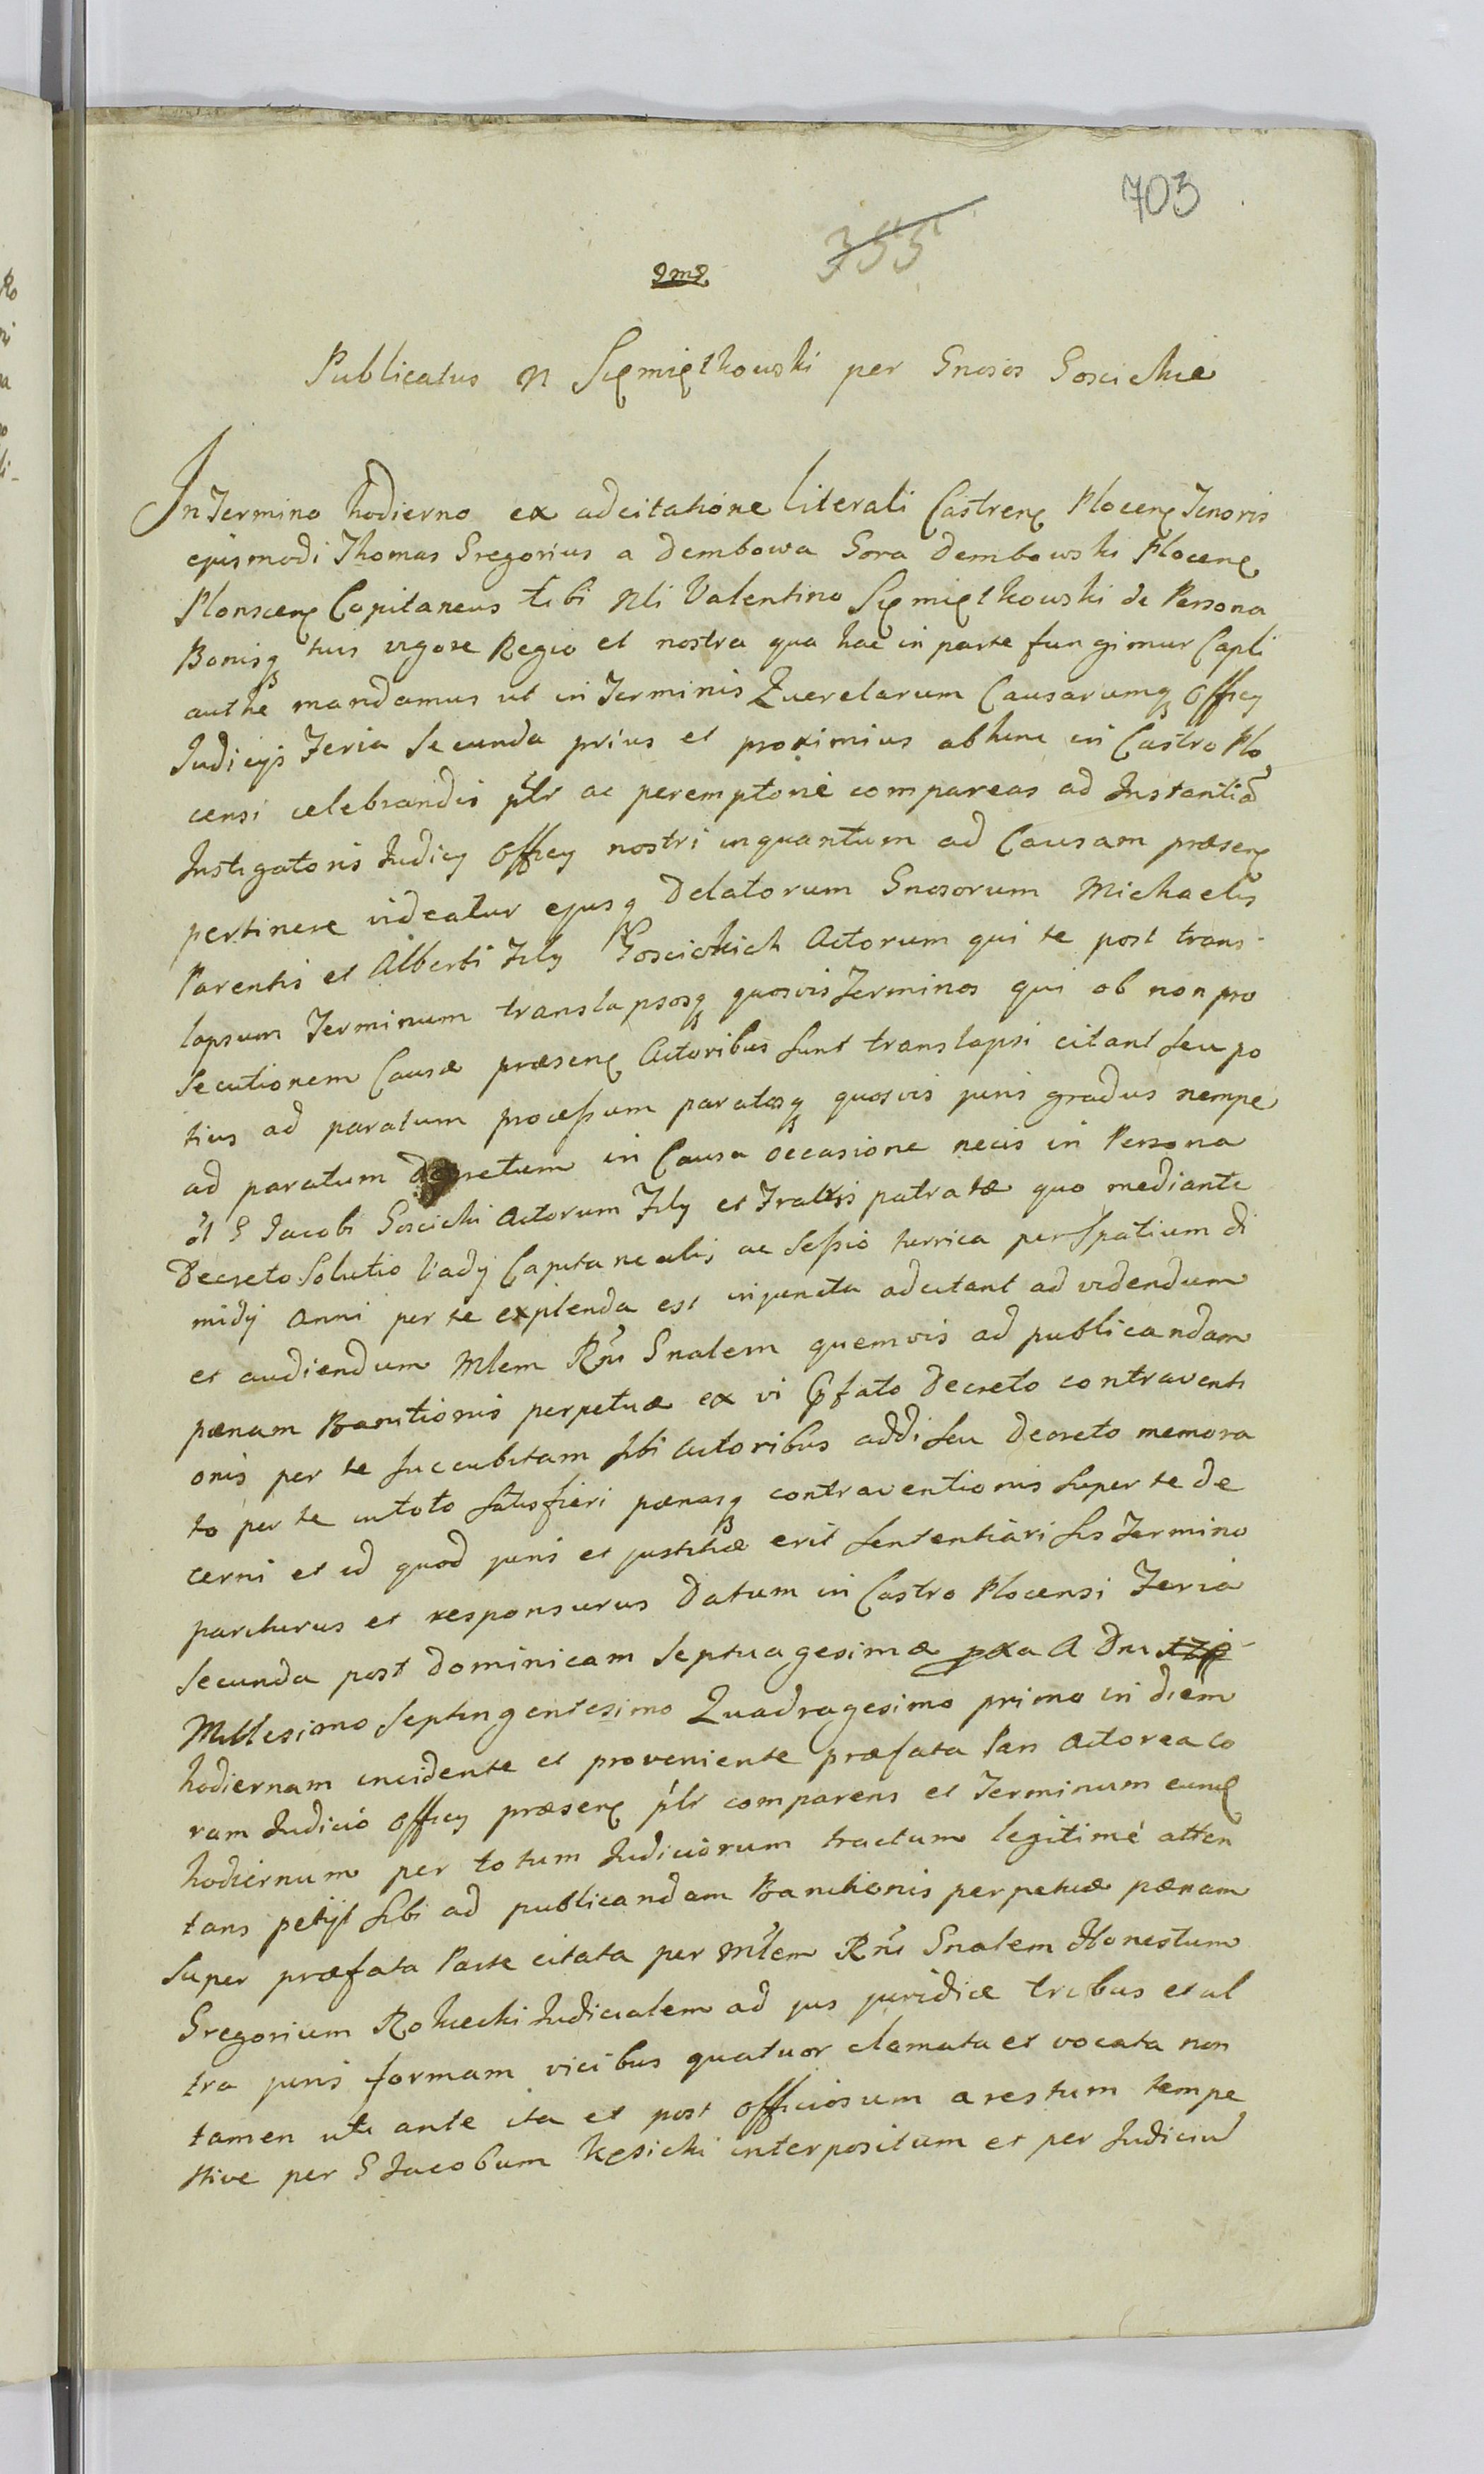 703
355
Publicatus N Sięmiętkowski per Gnosos Goscickie
In Termino hodierno ex adcitatione literali Castren Plocen Tenoris
ejusmodi Thomas Gregorius a Dembowa Gora Dembowski Plocen
Plonscen Capitaneus tibi Nli Valentino Sięmiętkowski de Persona
Bonisq tuis vigore Regio et nostra qua hac in parte fungimur Capli
authe mandamus ut in Terminis Querelarum Causarumq Officy
Judicijs Feria Secunda prius et proximius abhinc in Castro Plo
censi celebrandis plr ac peremptorie compareas ad Instantia
Instigatoris Judicy Officy nostri inquantum ad Causam præsen
pertinere videatur ejusq Delatorum Gnosorum Michaelis
Parentis et Alberti Fily Goscickich Actorum qui te post trans
lapsum Terminum translapsosq quosvis Terminos qui ob non pro
secutionem Causæ præsen Actoribus sunt translapsi citant seu po
tius ad paratum processum paratosq quosvis juris gradus nempe
ad paratum Decretum in Causa occasione necis in Persona
ol G Jacobi Goscicki Actorum Fily et Fratris patratæ quo mediante
Decreto Solutio Vady Capitanealis ac Sessio turrica per Spatium di
midij Anni per te explenda est injuncta adcitant ad videndum
et audiendum Mlem Rni Gnalem quemvis ad publicandam
pænam Banitionis perpetuæ ex vi præfato Decreto contraventi
onis per te succubitam sibi Actoribus addi seu Decreto memora
to per te in toto satisfieri pænasq contraventionis super te de
cerni et id quod juris et justitiæ erit sententiari sis Termino
pariturus et responsurus Datum in Castro Plocensi Feria
Secunda post Dominicam Septuagesimæ pxa A Dni
Millesimo Septingentesimo Quadragesimo primo in diem
hodiernam incidente et proveniente præfata Pars Actorea co
ram Judicio Officy præsen plr comparens et Terminum eund
hodiernum per totum Judiciorum tractum legitimé atten
tans petijt sibi ad publicandam Banitionis perpetuæ pænam
Super præfata Parte citata per Mlem Rni Gnalem Honestum
Gregorium Rokicki Judicialem ad jus juridice tribus et ul
tra juris formam vicibus quatuor clamata et vocata non
tamen uti ante ita et post officiosum arestum tempe
stive per G Jacobum Kęsicki interpositum et per Judiciu